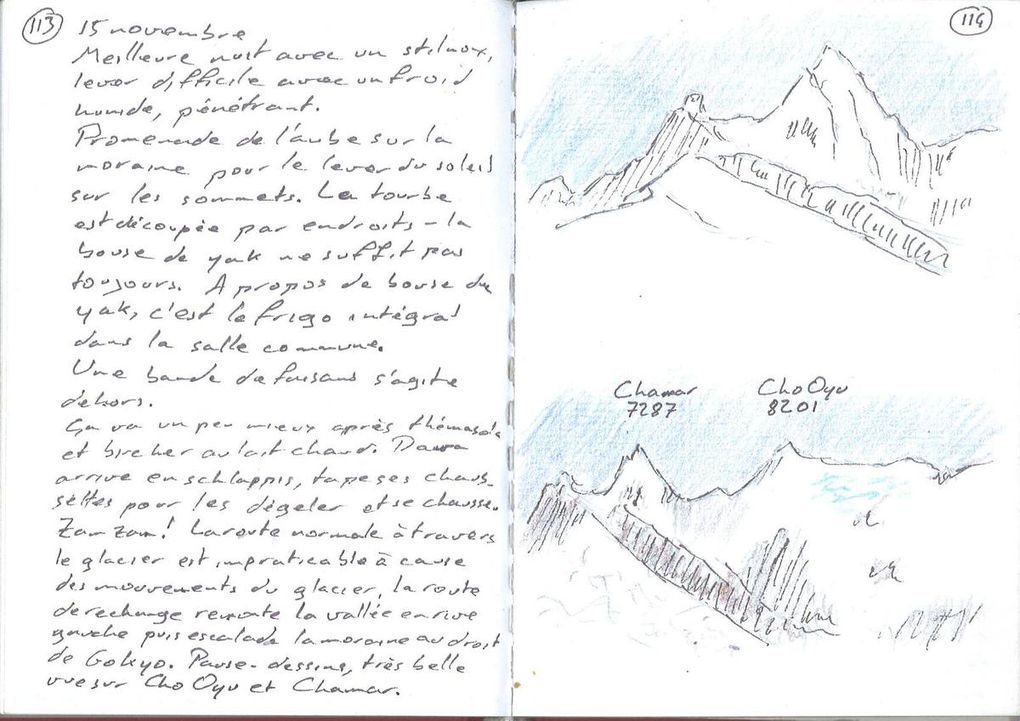 113
15 novembre
Meilleure nuit avec un stilnox,
lever difficile avec un froid
humide, pénétrant.
Promenade de l'aube sur la
moraine pour le lever du soleil
sur les sommets. La tourbe
est découpée par endroits - la
bouse de yak ne suffit pas
toujours. A propos de bouse de
yak, c'est le frigo intégral
dans la salle commune.
Une bande de faisans s'agite
dehors.
Ça va un peu mieux après thé masala
et bircher au lait chaud. Dawa
arrive en schlappis, tape ses chaus-
settes pour les dégeler et se chausse.
Zam Zam! La route normale à travers
le glacier est impraticable à cause
des mouvements du glacier, la route
de rechange remonte la vallée en rive
gauche puis escalade la moraine au droit
de Gokyo. Pause-dessins, très belle
vue sur Cho Oyu et Chamar.
114
Chamar Cho Oyu
7287 8201